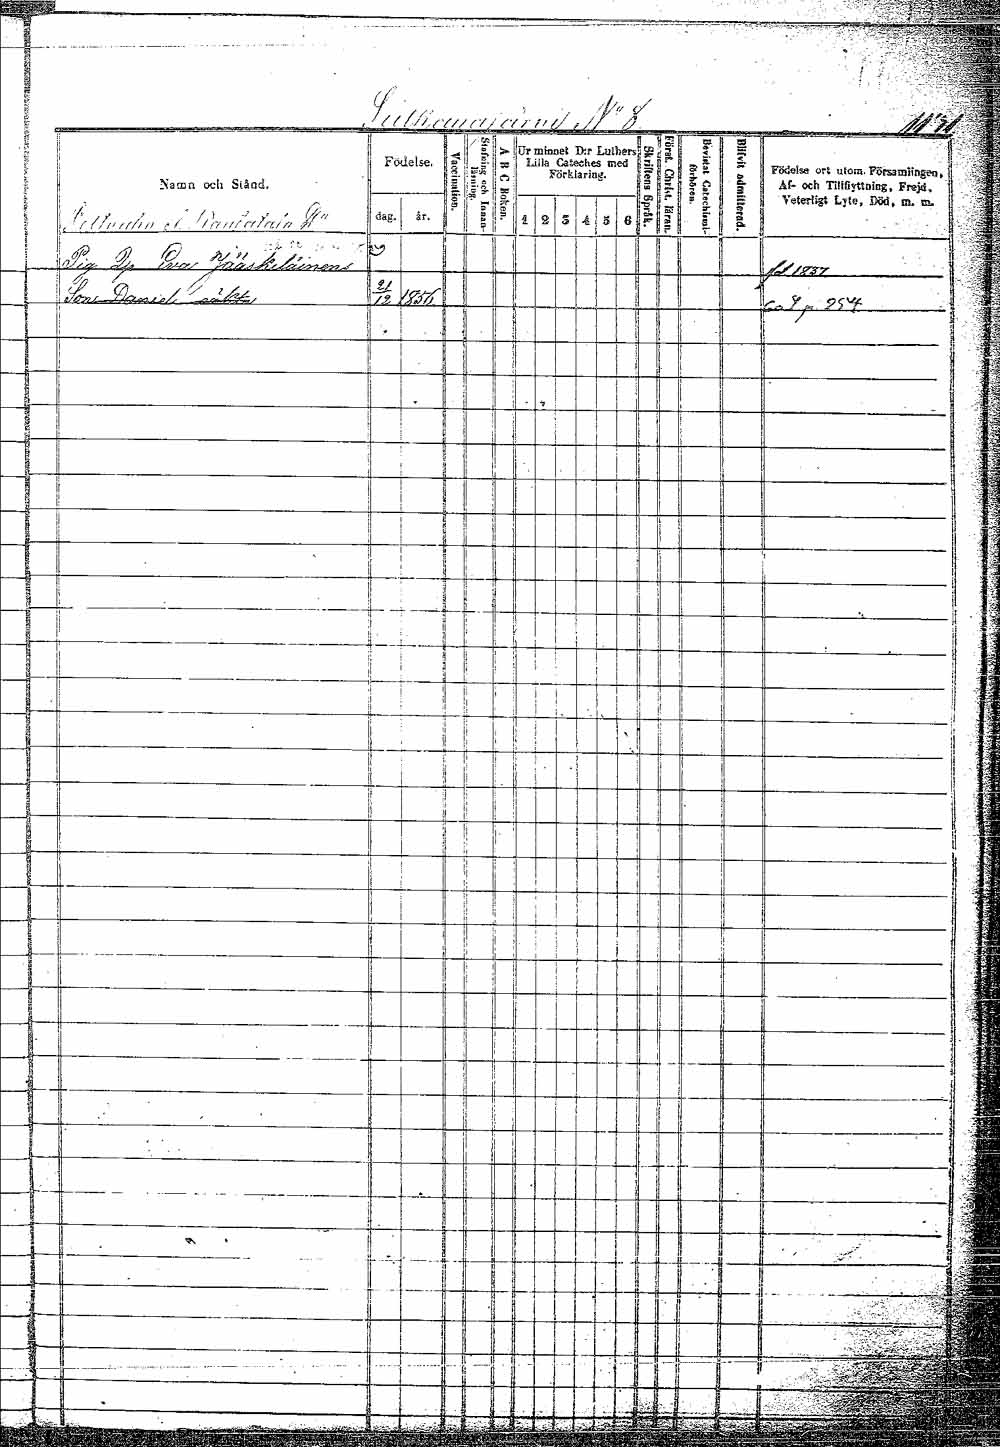 N:o 8
Namn och Stånd.
Födelse.
dag. år.
Vaccination.
Stafning och Innan-läsning.
A B C Boken.
Ur minnet D:r Luthers
Lilla Cateches med
Förklaring.
1 2 3 4 5 6
Skriftens Språk.
Först. Christ. läran.
Bevistat Catechismi-förhören.
Blifvit admitterad.
Födelse ort utom. Församlingen,
Af- och Tillflyttning, Frejd,
Veterligt Lyte, Död, m. m.
Pig Eva Jääskeläinens
1857
Son Daniel oäkta 21/12 1856
p. 254